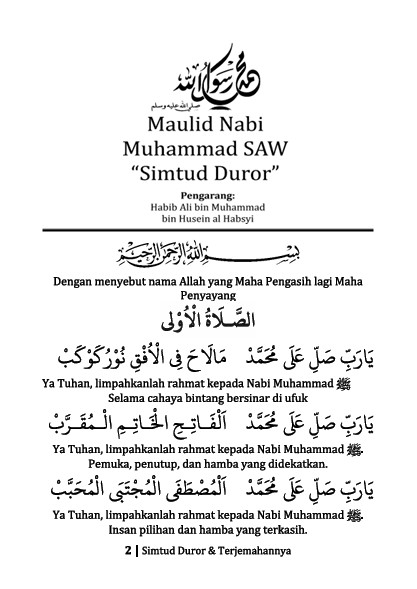 محمد رسول الله
صلى الله عليه وسلم
Maulid Nabi
Muhammad SAW
“Simtud Duror”
Pengarang:
Habib Ali bin Muhammad
bin Husein al Habsyi
بِسْمِ اللهِ الرَّحْمٰنِ الرَّحِيْمِ
Dengan menyebut nama Allah yang Maha Pengasih lagi Maha
Penyayang
الصَّلَاةُ الْاُوْلٰى
يَارَبِّ صَلِّ عَلَى مُحَمَّدْ مَالَاحَ فِى الْاُفْقِ نُوْرُكَوْكَبْ
Ya Tuhan, limpahkanlah rahmat kepada Nabi Muhammad ﷺ
Selama cahaya bintang bersinar di ufuk
يَارَبِّ صَلِّ عَلَى مُحَمَّدْ اَلْفَاتِحِ الْخَاتِمِ الْمُقَرَّبْ
Ya Tuhan, limpahkanlah rahmat kepada Nabi Muhammad ﷺ.
Pemuka, penutup, dan hamba yang didekatkan.
يَارَبِّ صَلِّ عَلَى مُحَمَّدْ اَلْمُصْطَفَى الْمُجْتَبَى الْمُحَبَّبْ
Ya Tuhan, limpahkanlah rahmat kepada Nabi Muhammad ﷺ.
Insan pilihan dan hamba yang terkasih.
2 | Simtud Duror & Terjemahannya